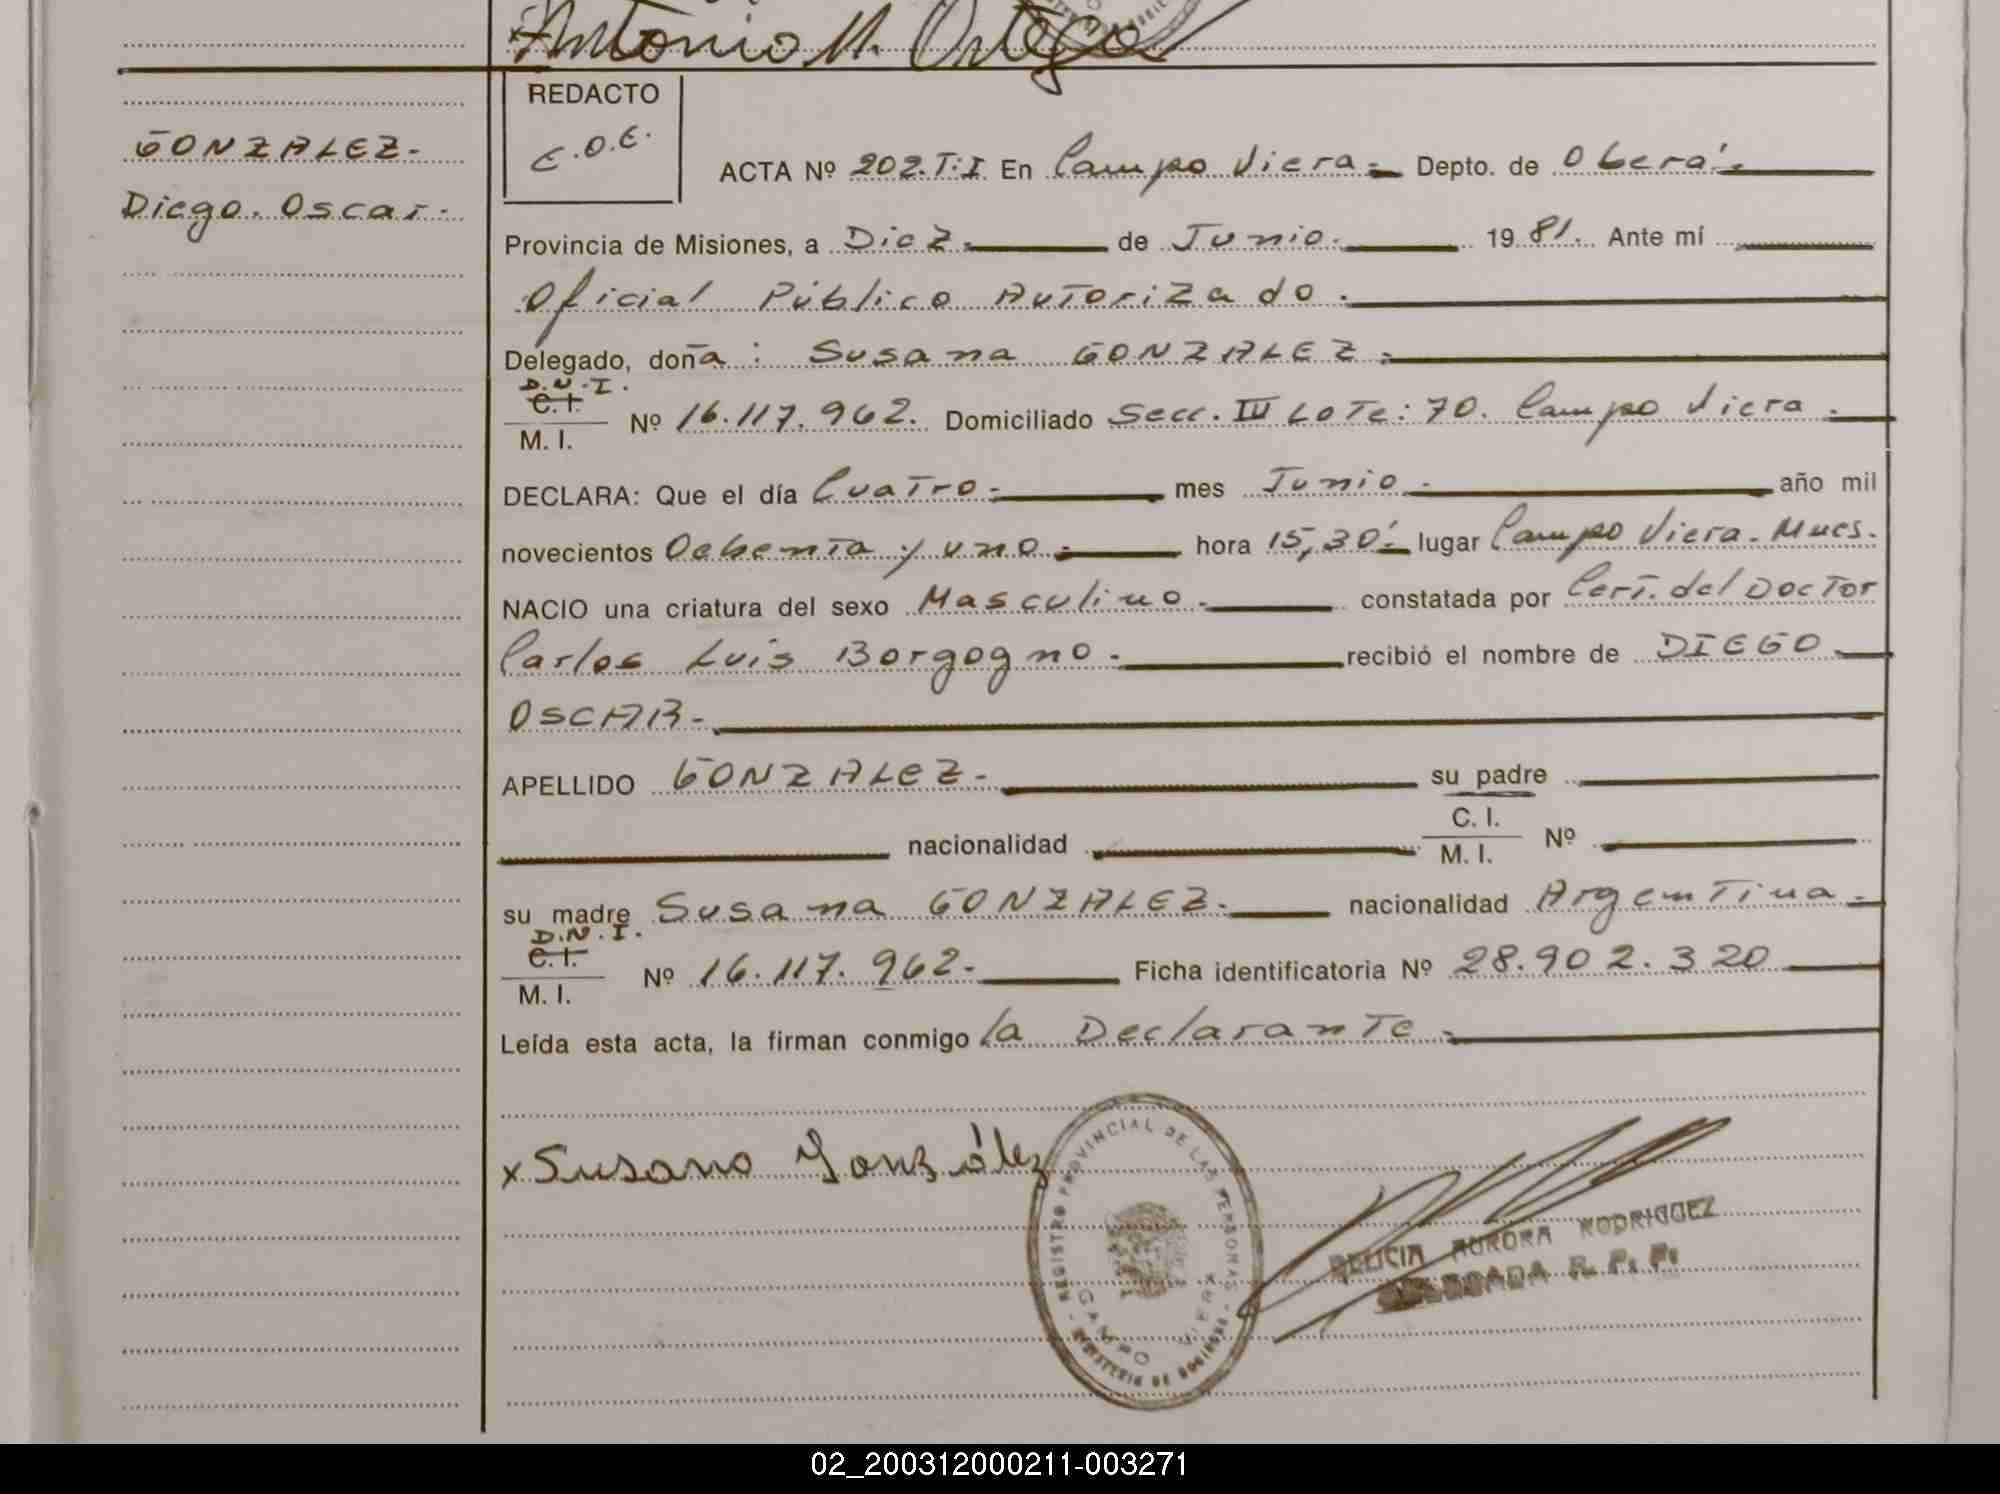 Antonio M. Ortega
REDACTO
E.O.E.
GONZALEZ.-
Diego. Oscar.-
ACTA Nº 202.T:I. En Campo Viera.- Depto. de Oberá.-
Provincia de Misiones, a Diez.- de Junio.- 1981. Ante mí
Oficial Público Autorizado.-
Delegado, doña: Susana GONZALEZ.-
D.N.I.
C.I.
M. I. Nº 16.117.962. Domiciliado Secc. III Lote: 70. Campo Viera.-
DECLARA: Que el día Cuatro.- mes Junio.- año mil
novecientos Ochenta y uno.- hora 15,30'.- lugar Campo Viera. Mnes.
NACIO una criatura del sexo Masculino.- constatada por Cert. del Doctor
Carlos Luis Borgogno.- recibió el nombre de DIEGO
OSCAR.-
APELLIDO GONZALEZ.- su padre
nacionalidad C. I. M. I. Nº
su madre Susana GONZALEZ.- nacionalidad Argentina.-
D.N.I.
C.I.
M. I. Nº 16.117.962.- Ficha identificatoria Nº 28.902.320
Leída esta acta, la firman conmigo la Declarante.-
x Susana González
REGISTRO PROVINCIAL DE LAS PERSONAS
CAMPO VIERA
MINISTERIO DE GOBIERNO
DELICIA AURORA RODRIGUEZ
DELEGADA R. P. P.
02_200312000211-003271